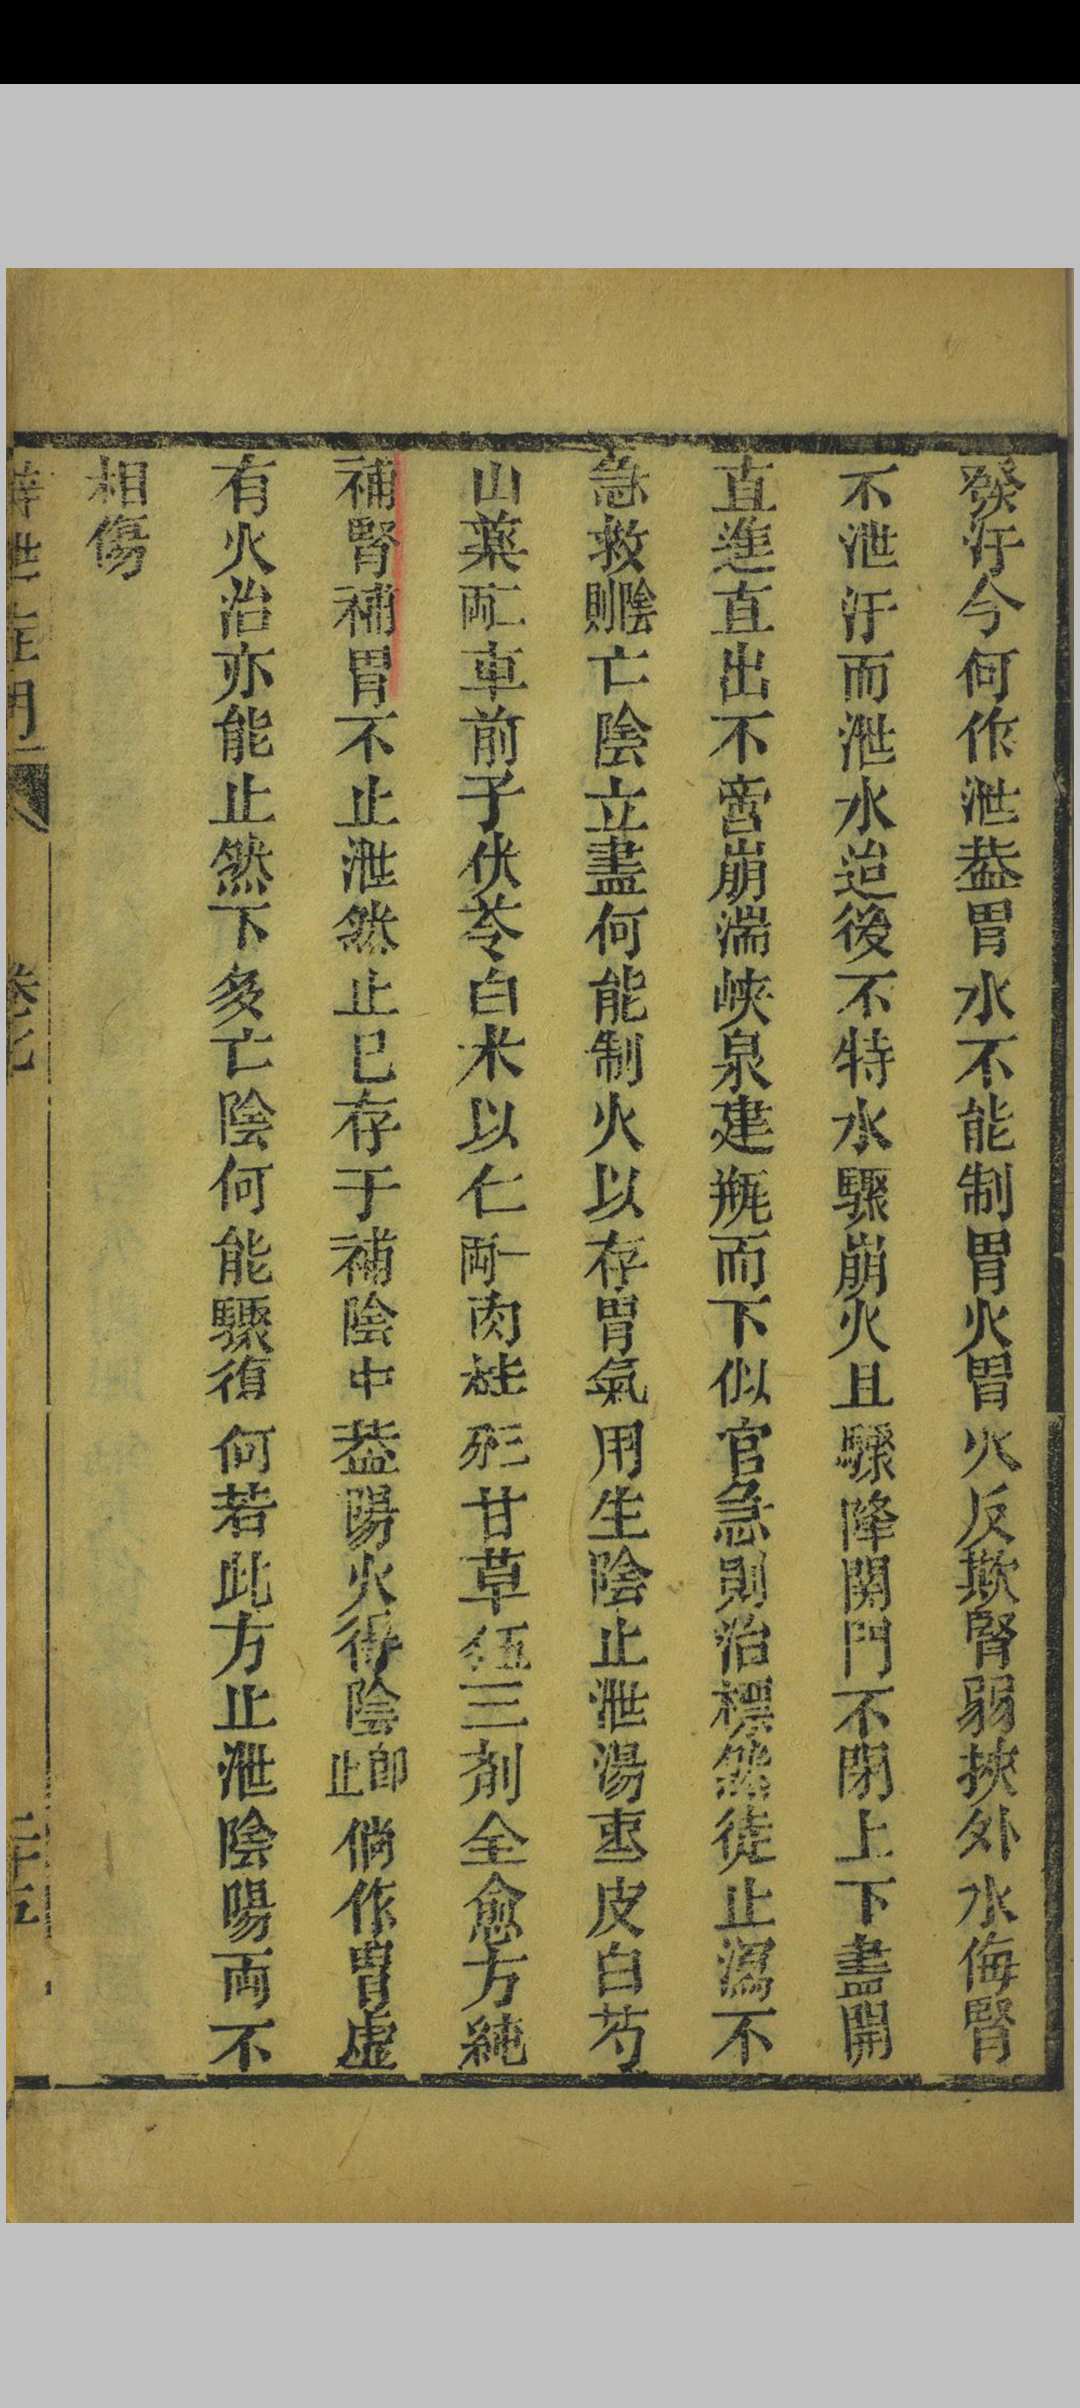 發汗今何作泄蓋胃水不能制胃火胃火反欺腎弱挾外水侮腎
不泄汗而泄水迨後不特水驟崩火且驟降関門不閉上下盡開
直進直出不啻崩湍峽泉建瓶而下似官急則治標然徒止瀉不
急救陰則亡陰立盡何能制火以存胃氣用生陰止泄湯萸皮白芍
山藥二両車前子伏苓白术以仁一両肉桂三甘草五三剤全愈方純
補腎補胃不止泄然止已存于補陰中蓋陽火得陰即止倘作胃虛
有火治亦能止然下多亡陰何能驟復何若此方止泄陰陽両不
相傷